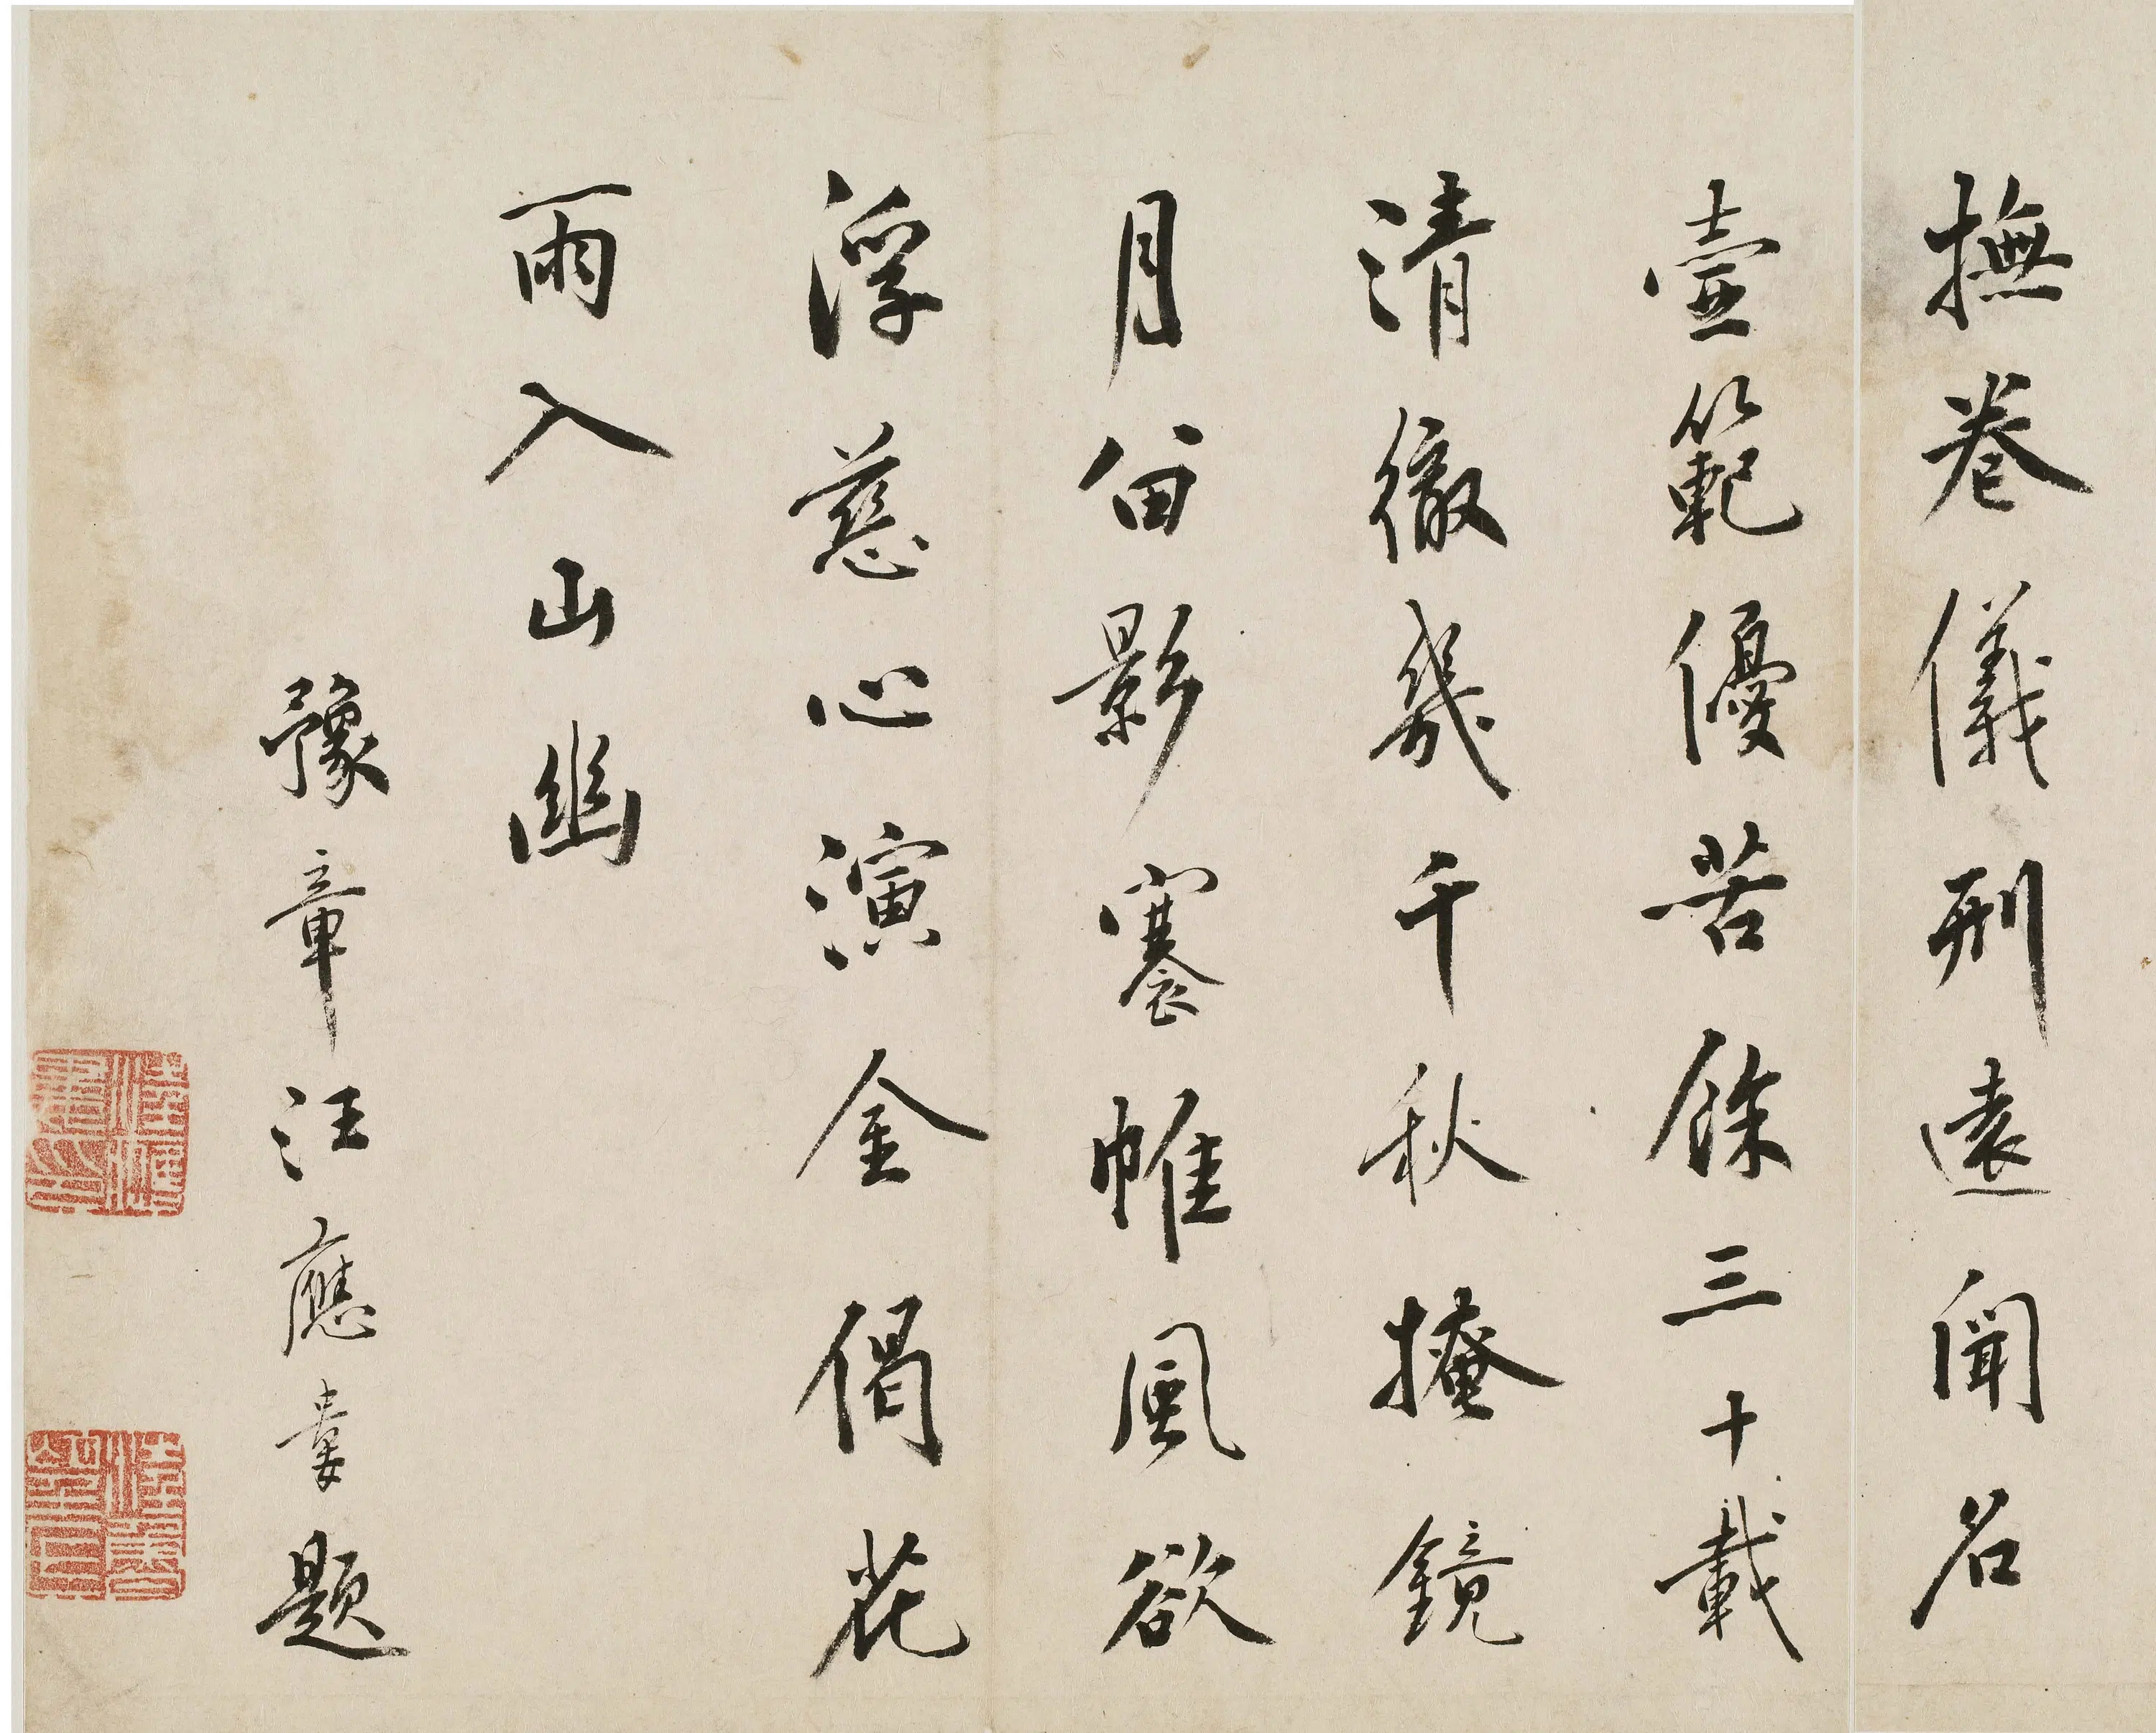 撫卷儀刑遠聞名
壼範優苦餘三十載
清徹幾千秋掩鏡
月留影褰帷風欲
浮慈心演金偈花
雨入山幽
豫章汪應婁題